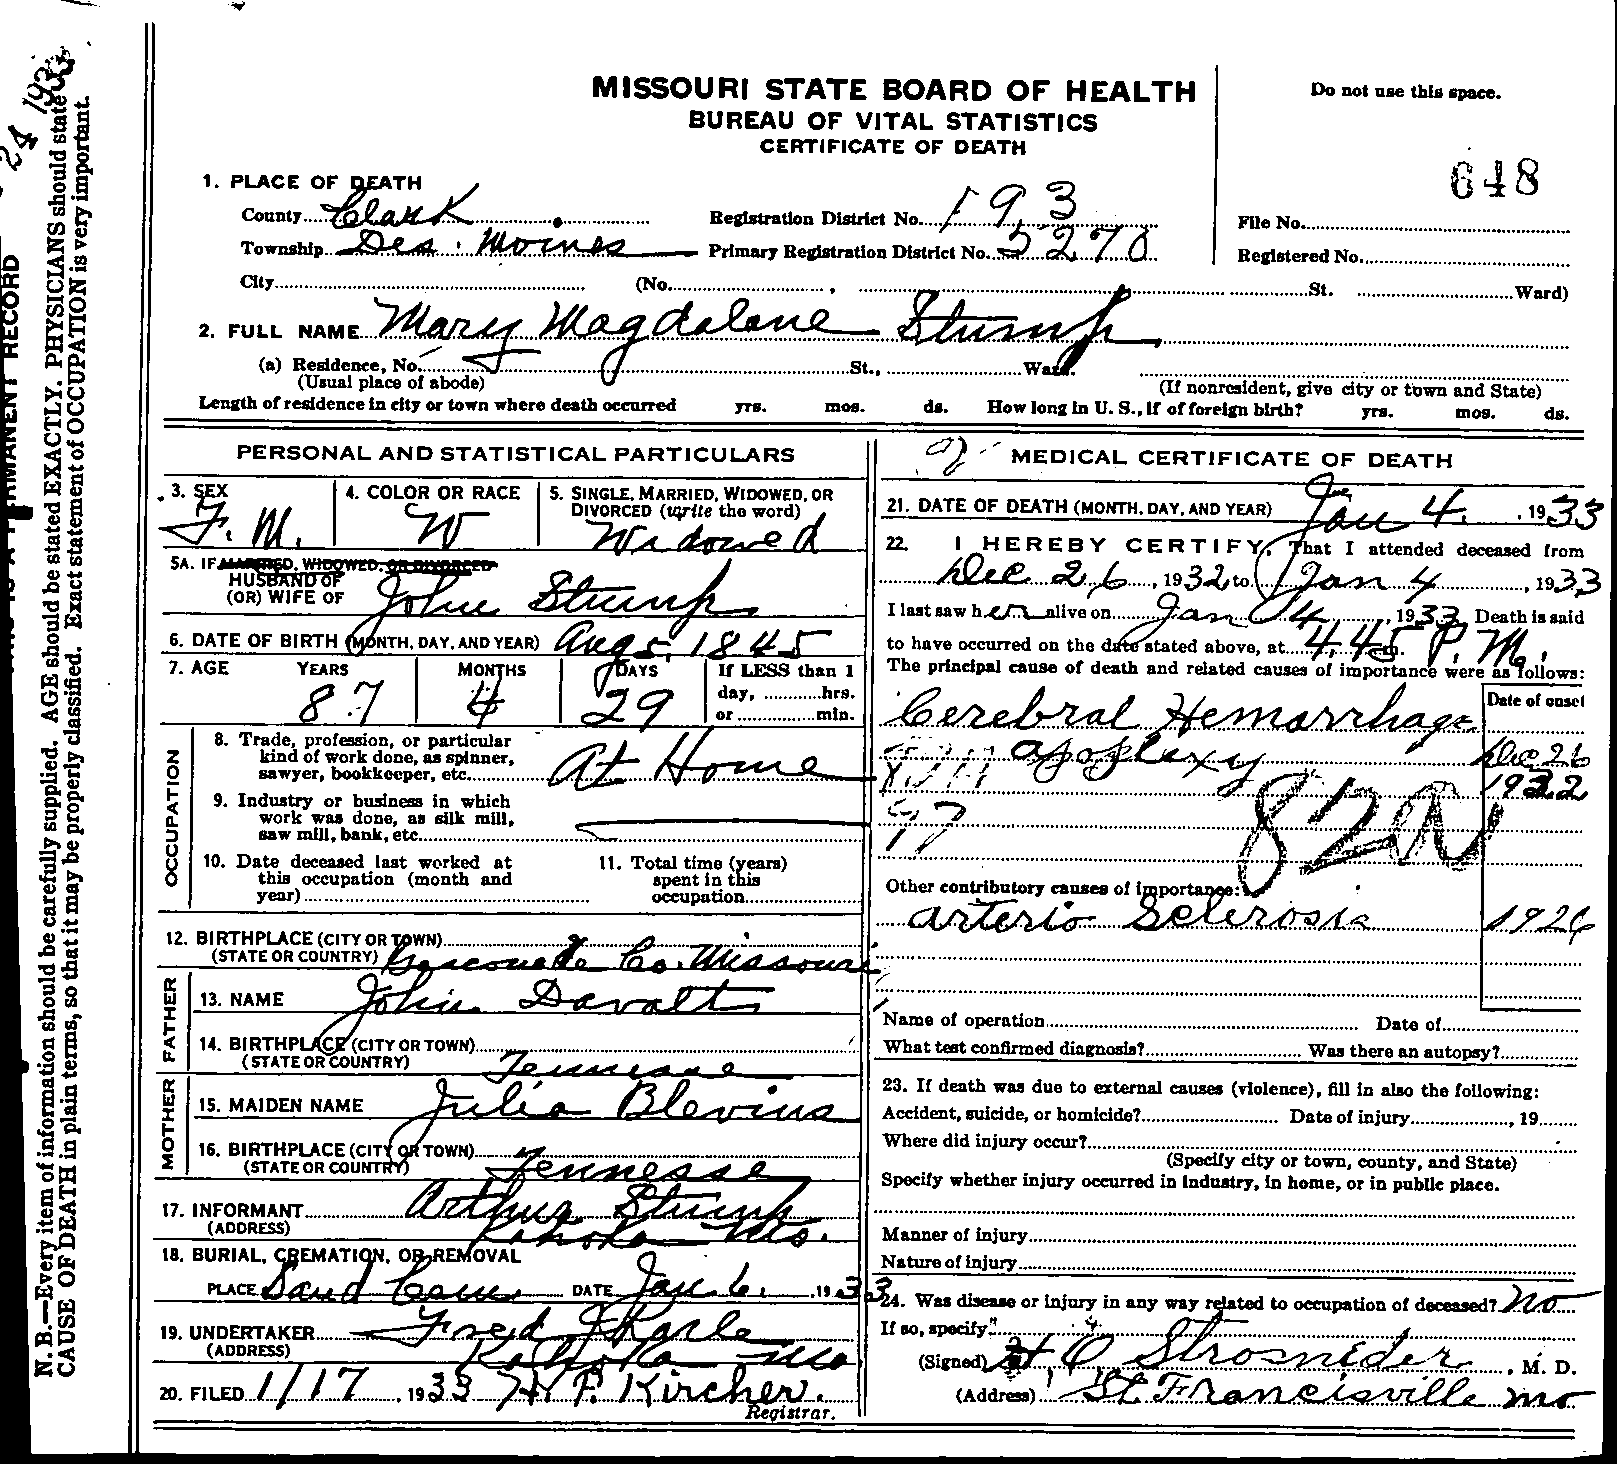 24 193
N. B.—Every item of information should be carefully supplied. AGE should be stated EXACTLY. PHYSICIANS should state
CAUSE OF DEATH in plain terms, so that it may be properly classified. Exact statement of OCCUPATION is very important.
MISSOURI STATE BOARD OF HEALTH
BUREAU OF VITAL STATISTICS
CERTIFICATE OF DEATH
Do not use this space.
648
1. PLACE OF DEATH
County Clark
Registration District No. 193
File No.
Township Des Moines
Primary Registration District No. 5270
Registered No.
City (No. , St. Ward)
2. FULL NAME Mary Magdalane Stump
(a) Residence, No. St., Ward.
(Usual place of abode) (If nonresident, give city or town and State)
Length of residence in city or town where death occurred yrs. mos. ds. How long in U. S., if of foreign birth? yrs. mos. ds.
PERSONAL AND STATISTICAL PARTICULARS
3. SEX F. M.
4. COLOR OR RACE W
5. SINGLE, MARRIED, WIDOWED, OR
DIVORCED (write the word)
Widowed
5A. IF MARRIED, WIDOWED, OR DIVORCED
HUSBAND OF
(OR) WIFE OF John Stump
6. DATE OF BIRTH (MONTH, DAY, AND YEAR) Aug 5, 1845
7. AGE YEARS MONTHS DAYS If LESS than 1
day, hrs.
or min.
87 4 29
OCCUPATION
8. Trade, profession, or particular
kind of work done, as spinner,
sawyer, bookkeeper, etc. At Home
9. Industry or business in which
work was done, as silk mill,
saw mill, bank, etc.
10. Date deceased last worked at
this occupation (month and
year)
11. Total time (years)
spent in this
occupation
12. BIRTHPLACE (CITY OR TOWN)
(STATE OR COUNTRY) Gasconade Co. Missouri
FATHER
13. NAME John Davalt
14. BIRTHPLACE (CITY OR TOWN)
(STATE OR COUNTRY) Tennesse
MOTHER
15. MAIDEN NAME Julia Blevins
16. BIRTHPLACE (CITY OR TOWN)
(STATE OR COUNTRY) Tennesse
17. INFORMANT Arthur Stump
(ADDRESS) Kahoka Mo.
18. BURIAL, CREMATION, OR REMOVAL
PLACE Sand Cem DATE Jan 6, 1933
19. UNDERTAKER Fred Karle
(ADDRESS) Kahoka Mo
20. FILED 1/17 1933 H. P. Kircher.
Registrar.
MEDICAL CERTIFICATE OF DEATH
21. DATE OF DEATH (MONTH, DAY, AND YEAR) Jan 4. , 1933
22. I HEREBY CERTIFY, That I attended deceased from
Dec 26, 1932 to Jan 4, 1933
I last saw her alive on Jan 4, 1933. Death is said
to have occurred on the date stated above, at 4.45 P. M.
The principal cause of death and related causes of importance were as follows:
Date of onset
Cerebral Hemarrhage
apoplexy Dec 26
1932
97
82a
Other contributory causes of importance:
Arterio Sclerosis 1926
Name of operation Date of
What test confirmed diagnosis? Was there an autopsy?
23. If death was due to external causes (violence), fill in also the following:
Accident, suicide, or homicide? Date of injury , 19
Where did injury occur?
(Specify city or town, county, and State)
Specify whether injury occurred in industry, in home, or in public place.
Manner of injury
Nature of injury
24. Was disease or injury in any way related to occupation of deceased? No
If so, specify
(Signed) H O Strosnider, M. D.
(Address) St. Francisville Mo